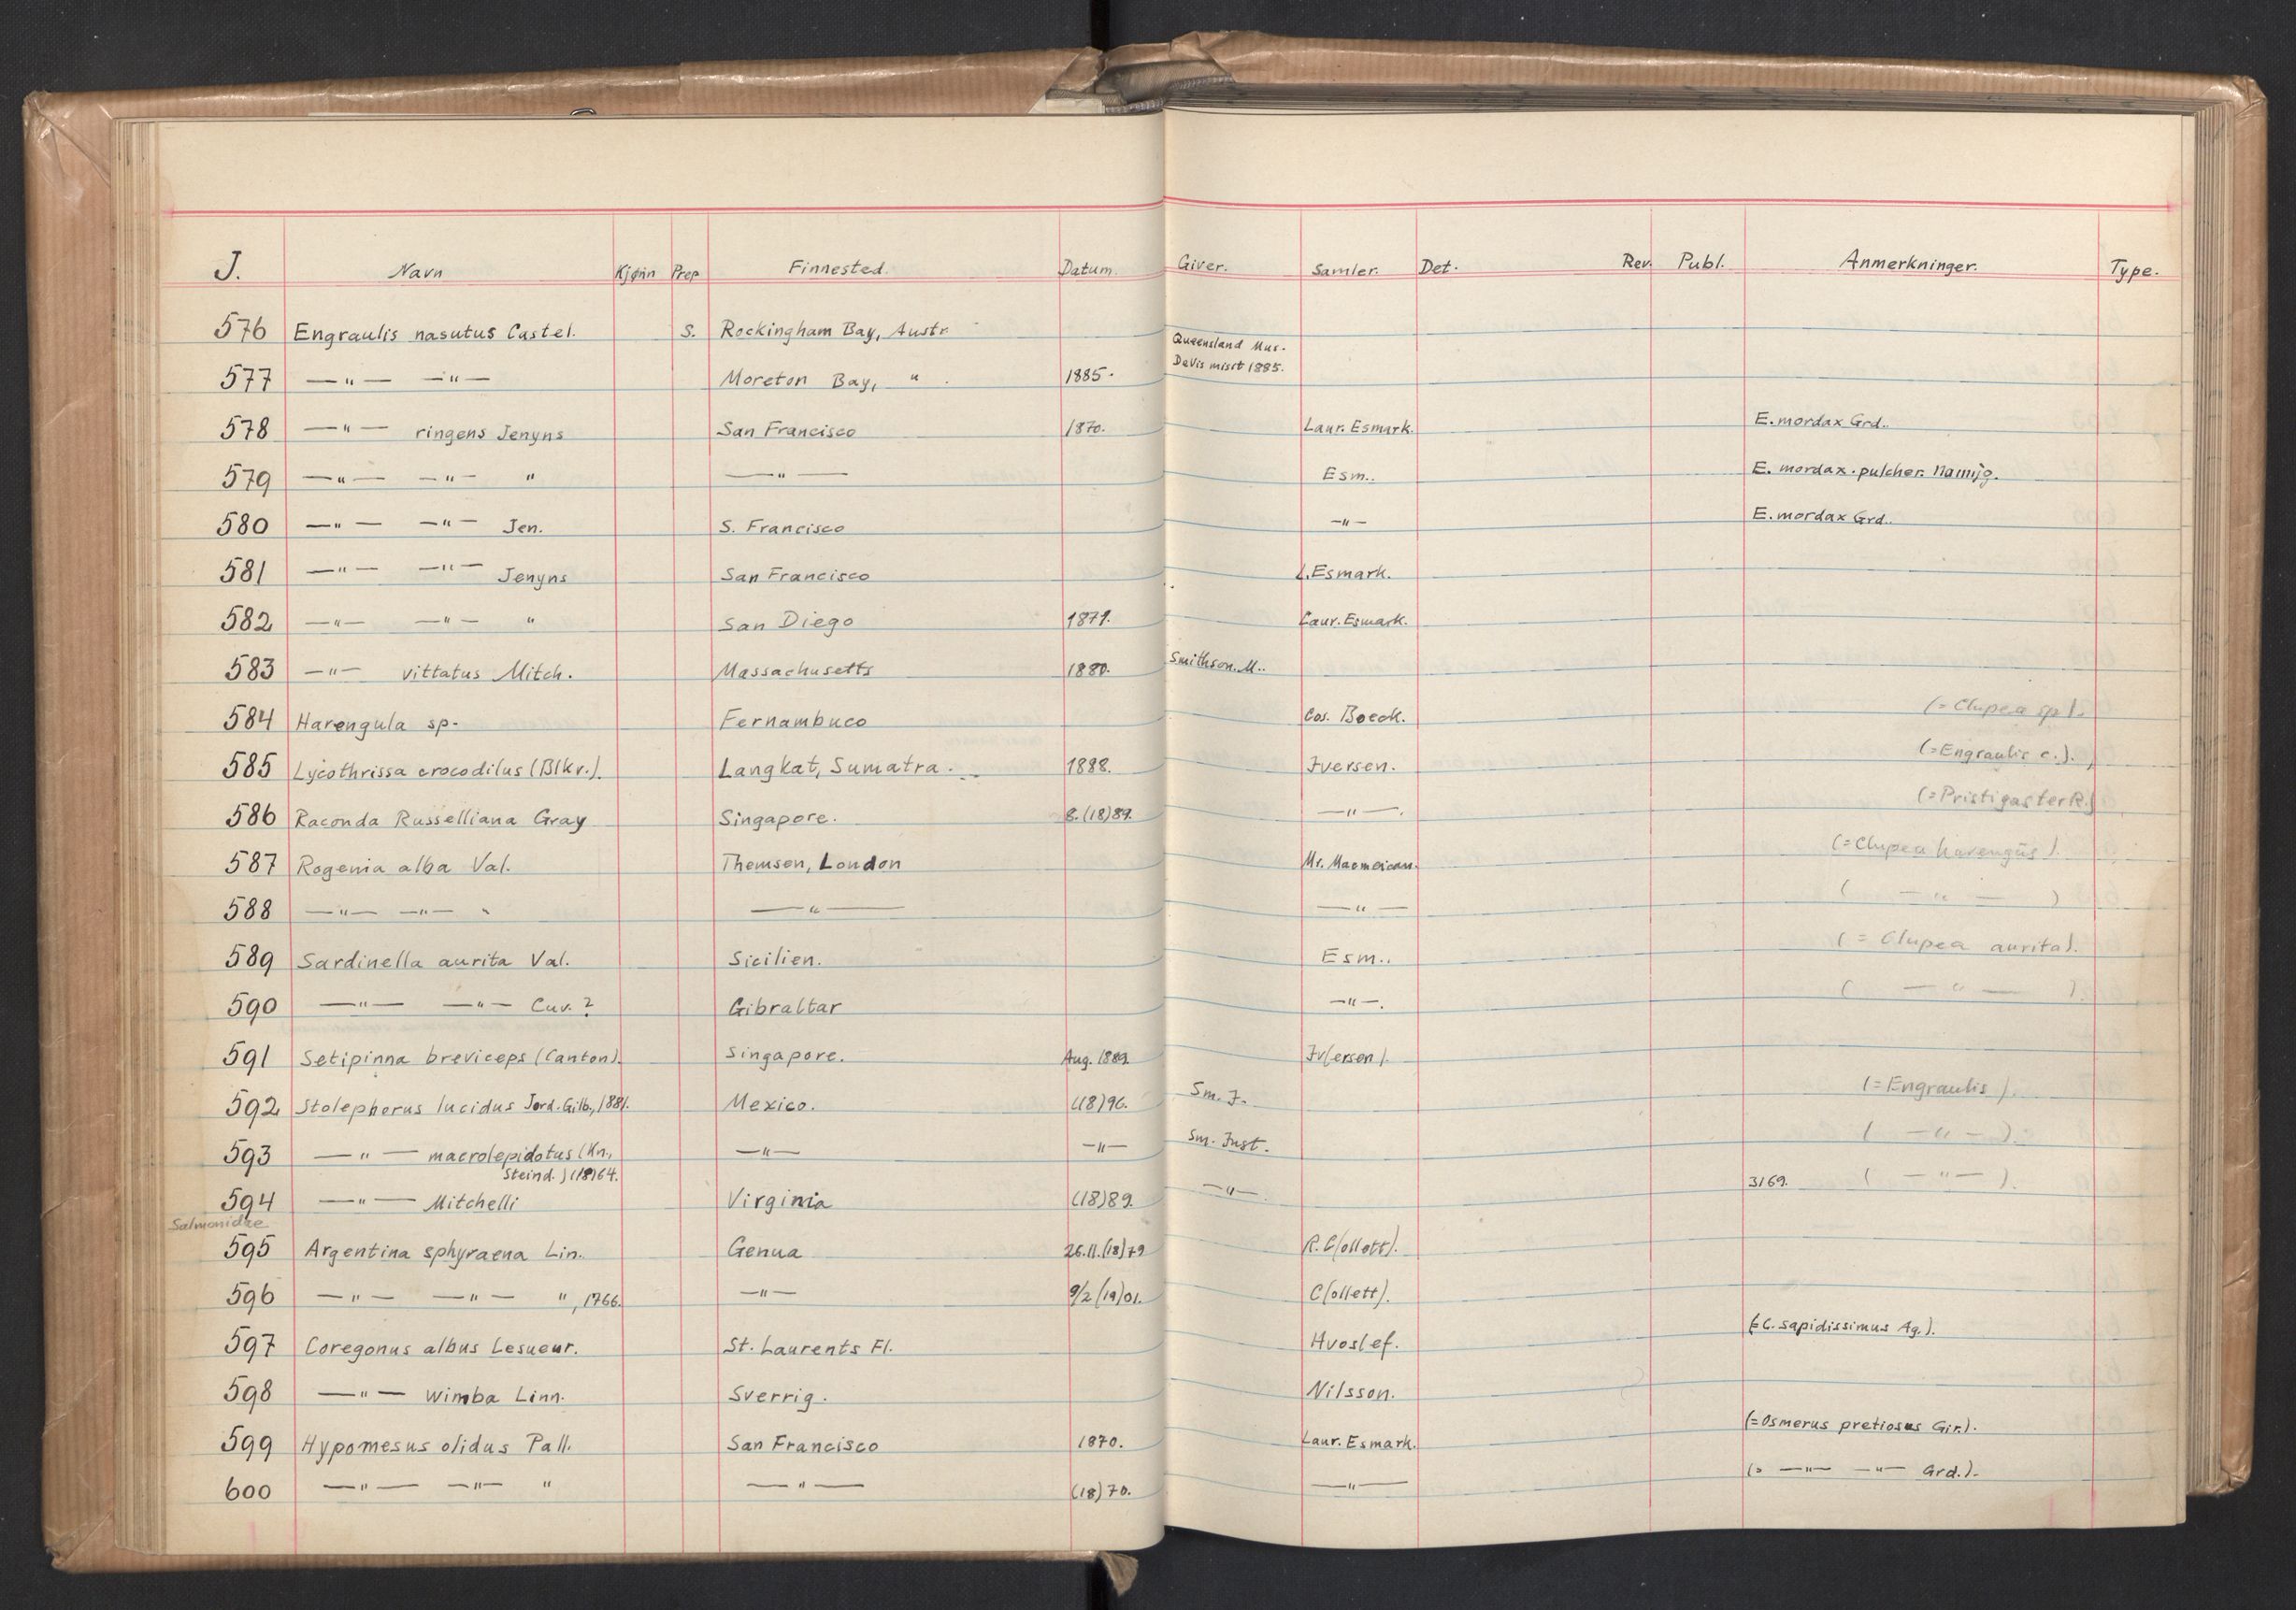 J. Navn Kjønn Prep Finnested. Datum. Giver. Samler. Det. Rev. Publ. Anmerkninger. Type.
576 Engraulis nasutus Castel. S. Rockingham Bay, Austr.
Queensland Mus.
577 —"— —"— Moreton Bay, " . 1885. DeVis misit 1885.
578 —"— ringens Jenyns San Francisco 1870. Laur. Esmark. E. mordax Grd..
579 —"— —"— " —"— Esm.. E. mordax. pulcher.
580 —"— —"— Jen. S. Francisco —"— E. mordax Grd..
581 —"— —"— Jenyns San Francisco L. Esmark.
582 —"— —"— " San Diego 1871. Laur. Esmark.
583 —"— vittatus Mitch. Massachusetts 1880. Smithson. M..
584 Harengula sp. Fernambuco Cos. Boeck. (= Clupea sp).
585 Lycothrissa crocodilus (Blkr.). Langkat, Sumatra. 1888. Iversen. (=Engraulis c.).
586 Raconda Russelliana Gray Singapore. 8.(18)89. —"—. (=Pristigaster R.)
587 Rogenia alba Val. Themsen, London Mr. (=Clupea harengus).
588 —"— —"— " —"— —"— ( —"— )
589 Sardinella aurita Val. Sicilien. Esm.. (= Clupea aurita).
590 —"— —"— Cuv. ? Gibraltar —"—. ( —"— ).
591 Setipinna breviceps (Canton). Singapore. Aug. 1889. Iv(ersen).
592 Stolephorus lucidus Jord. Gilb., 1881. Mexico. (18)96. Sm. I. (=Engraulis ).
593 —"— macrolepidotus (Kn., —"— —"— Sm. Inst. ( —"— ).
Steind.) (18)64.
594 —"— Mitchelli Virginia (18)89. —"—. 3169. ( —"— ).
Salmonidae
595 Argentina sphyraena Lin. Genua 26.11.(18)79 R. C(ollett).
596 —"— —"— ", 1766. —"— 9/2 (19)01. C(ollett).
597 Coregonus albus Lesueur. St. Laurents Fl. Hvoslef. (=C. sapidissimus Ag.).
598 —"— Wimba Linn. Sverrig. Nilsson.
599 Hypomesus olidus Pall. San Francisco 1870. Laur. Esmark. (=Osmerus pretiosus Gir.).
600 —"— —"— " —"— (18)70. —"— (= —"— —"— Grd.).